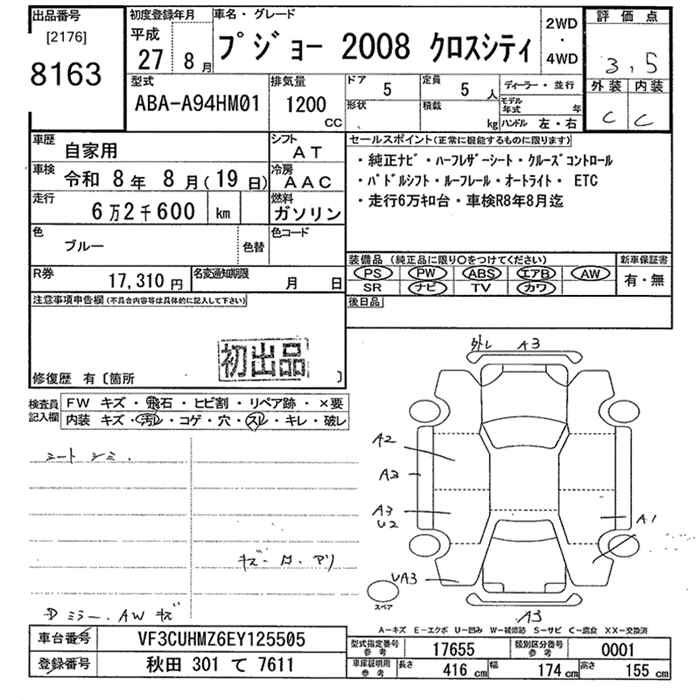 出品番号
[2176]
8163
初度登録年月
平成
27 8月
車名・グレード
プジョー 2008 クロスシティ
2WD
・
4WD
評価点
3,5
外装 内装
C C
型式
ABA-A94HM01
排気量
1200
CC
ドア 5
形状
定員 5 人
積載 kg
ディーラー・並行
モデル年式 年
ハンドル 左・右
車歴 自家用
シフト AT
車検 令和 8年 8月(19日)
冷房 AAC
走行 6万2千600 km
燃料 ガソリン
色 ブルー
色替
色コード
R券 17,310 円
名変通知期限 月 日
セールスポイント(正常に機能するものに限ります)
・純正ナビ・ハーフレザーシート・クルーズコントロール
・パドルシフト・ルーフレール・オートライト・ ETC
・走行6万キロ台・車検R8年8月迄
装備品 (純正品に限り〇をつけてください)
新車保証書
PS PW ABS エアB AW
有・無
SR ナビ TV カワ
後日品
注意事項申告欄(不具合内容等は具体的に記入して下さい)
初出品
修復歴 有〔箇所 〕
検査員記入欄
FW キズ・飛石・ヒビ割・リペア跡・×要
内装 キズ・汚レ・コゲ・穴・スレ・キレ・破レ
シートシミ.
Dミラー.AWキズ
外し A3
A2
A3
A3
U2
A1
UA3
A3
スペア
A-キズ E-エクボ U-凹み W-補修跡 S-サビ C-腐食 XX-交換済
車台番号 VF3CUHMZ6EY125505
登録番号 秋田 301 て 7611
型式指定番号 参考 17655
類別区分番号 参考 0001
車庫証明用 参考 長さ 416 cm 幅 174 cm 高さ 155 cm